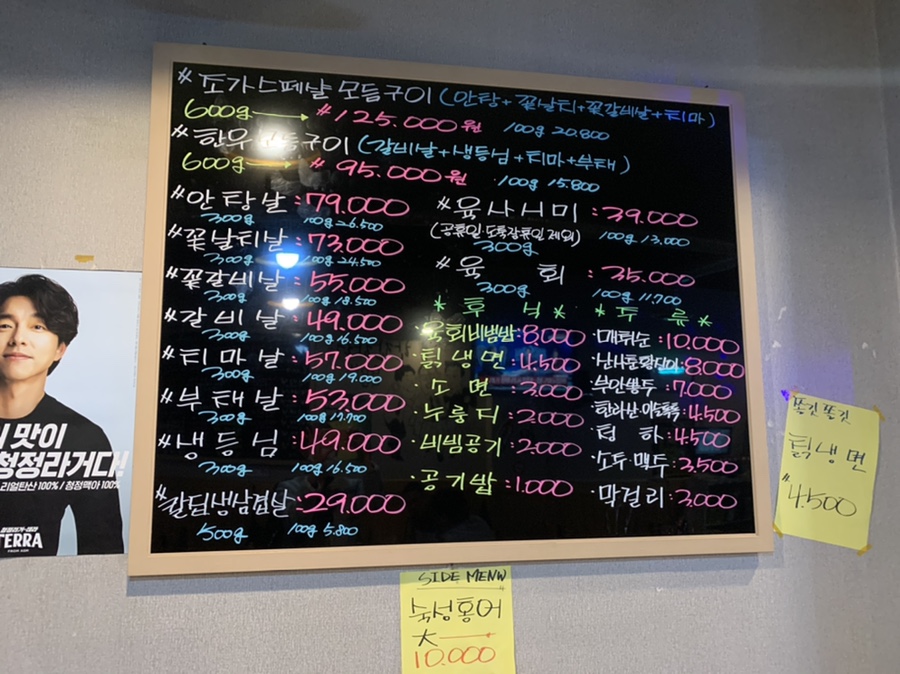 #조가스페샬 모듬구이 (안창+꽃살치+꽃갈비살+치마)
600g → #125.000원 100g 20.800
#한우 모듬구이 (갈비살+생등심+치마+부채)
600g → #95.000원 100g 15.800
#안창살:79.000
300g 100g 26.500
#꽃살치살:73.000
300g 100g 24.500
#꽃갈비살:55.000
300g 100g 18.500
#갈비살:49.000
300g 100g 16.500
#치마살:57.000
300g 100g 19.000
#부채살:53.000
300g 100g 17.700
#생등심:49.000
300g 100g 16.500
#칼집생삼겹살:29.000
500g 100g 5.800
#육사시미:39.000
(공휴일 토요일휴일 제외) 100g 13,000
300g
#육 회:35.000
300g 100g 11.700
*후 식*
·육회비빔밥:8,000
·칡냉면:4.500
·소 면:3.000
·누룽지:2.000
·비빔공기:2.000
·공기밥:1.000
*주 류*
·매취순:10.000
·8.000
·7.000
·4.500
·청 하:4500
·소주·맥주:3,500
·막걸리:3.000
쫄깃쫄깃
칡냉면
#4.500
SIDE MENU
숙성홍어
10.000
이 맛이
청정라거다!
리얼탄산 100% / 청정맥아 100%
청정라거-테라
TERRA